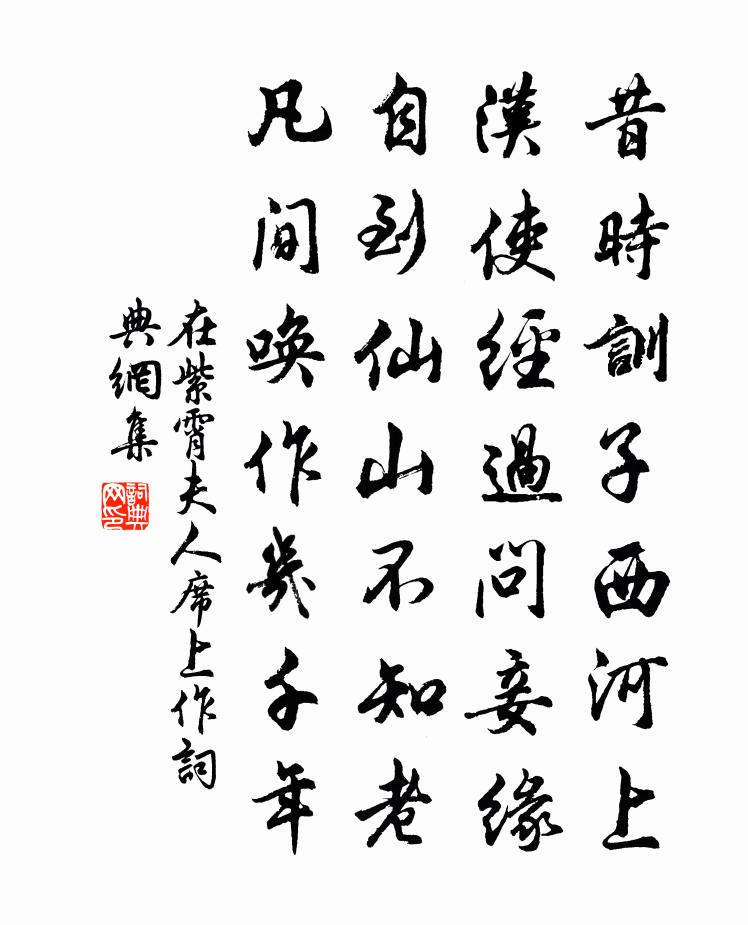 昔時訓子西河上
漢使經過問妾緣
自到仙山不知老
凡間喚作幾千年
在紫霄夫人席上作詞
典網集
詞典
网印